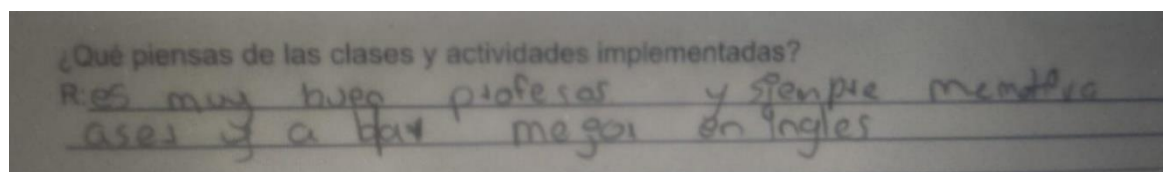 ¿Qué piensas de las clases y actividades implementadas?
R: es muy bueo profesor y sienpre memotiva
aser y a dar megor en ingles